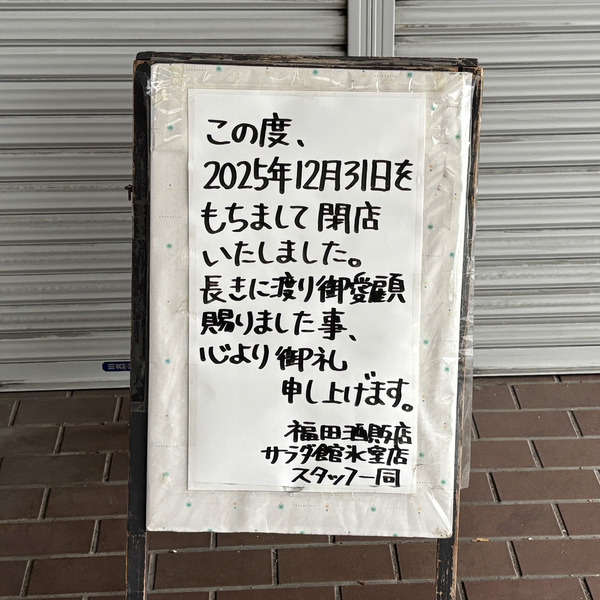 この度、
2025年12月31日を
もちまして閉店
いたしました。
長きに渡り御愛顧
賜りました事、
心より御礼
申し上げます。
福田酒販店
サラダ館氷室店
スタッフ一同